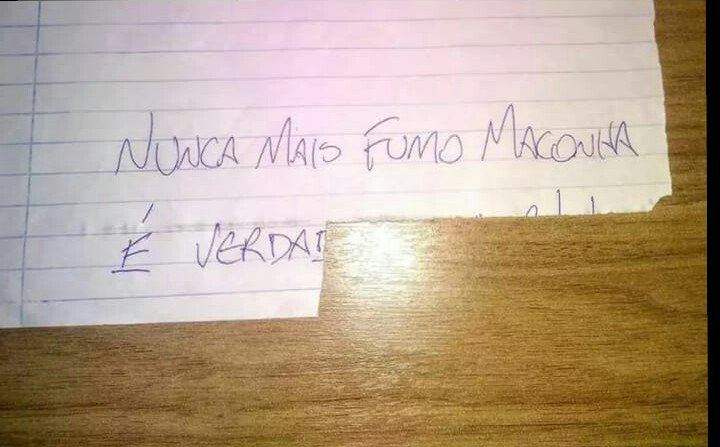 NUNCA MAIS FUMO MACONHA
É VERDAD